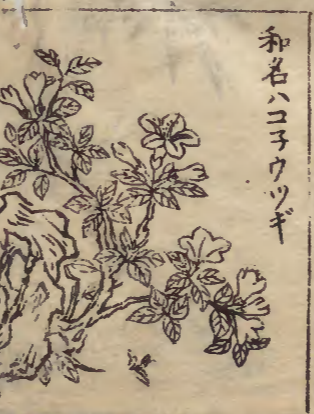 和名ハコ子ウツギ